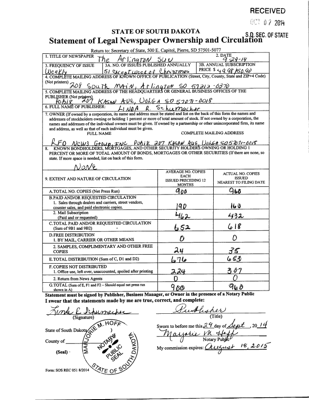 RECEIVED
OCT 02 2014
S.D. SEC. OF STATE
STATE OF SOUTH DAKOTA
Statement of Legal Newspaper Ownership and Circulation
Return to: Secretary of State, 500 E. Capitol, Pierre, SD 57501-5077
1. TITLE OF NEWSPAPER The Arlington Sun
2. DATE 9-29-14
3. FREQUENCY OF ISSUE Weekly
3A. NO. OF ISSUES PUBLISHED ANNUALLY 51
3B. ANNUAL SUBSCRIPTION PRICE
4. COMPLETE MAILING ADDRESS OF KNOWN OFFICE OF PUBLICATION (Street, City, County, State and Zip+4 Code) (Not printers)
208 South Main, Arlington SD 57212
5. COMPLETE MAILING ADDRESS OF THE HEADQUARTERS OF GENERAL BUSINESS OFFICES OF THE PUBLISHER (Not printers)
6. FULL NAME OF PUBLISHER: Linda R. Schumacher
7. OWNER (If owned by a corporation, its name and address must be stated and list on the back of this form the names and
addresses of stockholders owning or holding 1 percent or more of total amount of stock. If not owned by a corporation, the
names and addresses of the individual owners must be given. If owned by a partnership or other unincorporated firm, its name
and address, as well as that of each individual must be given.
FULL NAME COMPLETE MAILING ADDRESS
RFD News Group, Inc.
8. KNOWN BONDHOLDERS, MORTGAGEES, AND OTHER SECURITY HOLDERS OWNING OR HOLDING 1
PERCENT OR MORE OF TOTAL AMOUNT OF BONDS, MORTGAGES OR OTHER SECURITIES (If there are none, so
state. If more space is needed, list on back of this form.
None
9. EXTENT AND NATURE OF CIRCULATION
AVERAGE NO. COPIES EACH ISSUED PRECEDING 12 MONTHS
ACTUAL NO. COPIES ISSUED NEAREST TO FILING DATE
A. TOTAL NO. COPIES (Net Press Run) 900 960
B. PAID AND/OR REQUESTED CIRCULATION
1. Sales through dealers and carriers, street vendors, counter sales, and paid electronic copies. 190
2. Mail Subscription (Paid and or requested) 462 432
C. TOTAL PAID AND/OR REQUESTED CIRCULATION (Sum of 9B1 and 9B2) 652 618
D. FREE DISTRIBUTION
1. BY MAIL, CARRIER OR OTHER MEANS 0 0
2. SAMPLES, COMPLIMENTARY AND OTHER FREE COPIES 24 35
E. TOTAL DISTRIBUTION (Sum of C, D1 and D2) 676 653
F. COPIES NOT DISTRIBUTED
1. Office use, left over, unaccounted, spoiled after printing 224 307
2. Return from News Agents 0 0
G. TOTAL (Sum of E, F1 and F2 - Should equal net press run shown in A) 900 960
Statement must be signed by Publisher, Business Manager, or Owner in the presence of a Notary Public
I swear that the statements made by me are true, correct, and complete:
Linda R. Schumacher Publisher
(Signature) (Title)
State of South Dakota
Sworn to before me this 29 day of Sept, 20 14
County of
Marjorie M Hoff
Notary Public
(Seal)
My commission expires: August 18, 2015
MARJORIE M. HOFF
NOTARY PUBLIC
SEAL
SOUTH DAKOTA